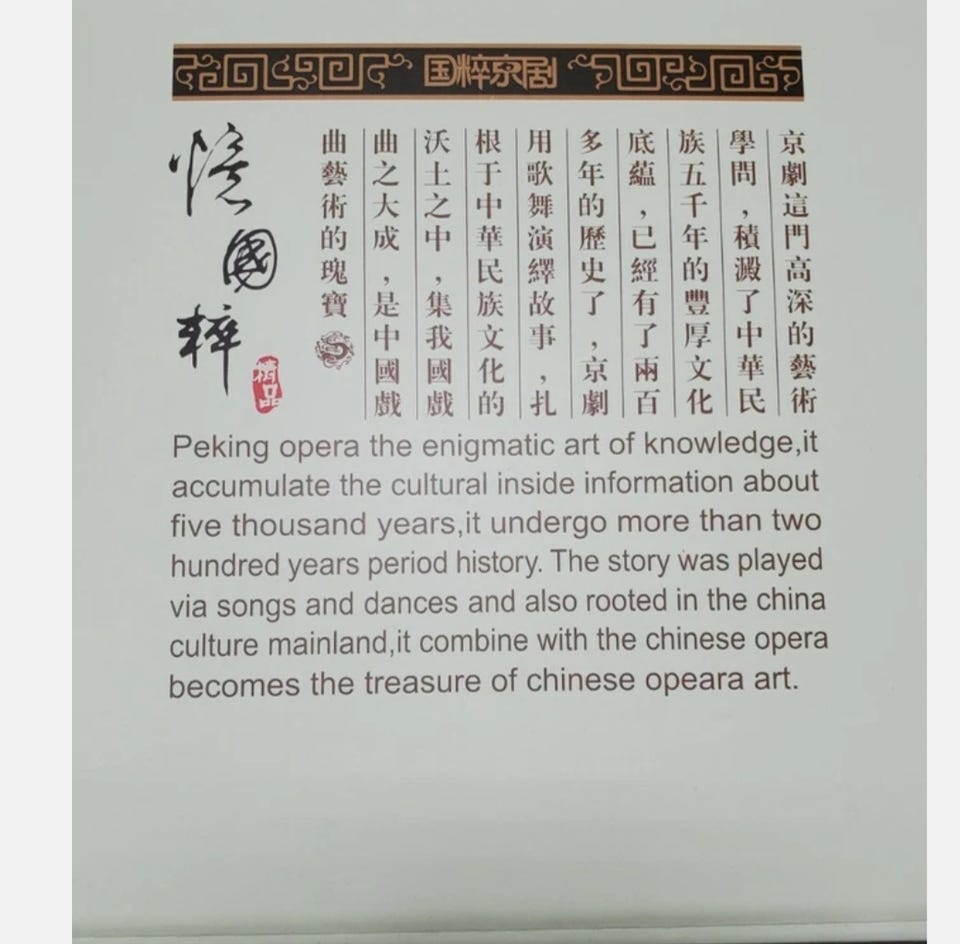 国粹京剧
憶國粹
精品
京劇這門高深的藝術
學問，積澱了中華民
族五千年的豐厚文化
底蘊，已經有了兩百
多年的歷史了，京劇
用歌舞演繹故事，扎
根于中華民族文化的
沃土之中，集我國戲
曲之大成，是中國戲
曲藝術的瑰寶
Peking opera the enigmatic art of knowledge,it
accumulate the cultural inside information about
five thousand years,it undergo more than two
hundred years period history. The story was played
via songs and dances and also rooted in the china
culture mainland,it combine with the chinese opera
becomes the treasure of chinese opeara art.